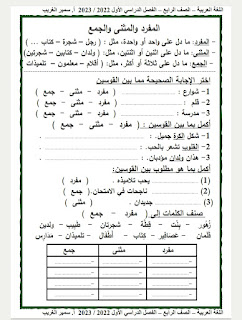 اللغة العربية – الصف الرابع – الفصل الدراسي الأول 2022 / 2023 أ. سمير الغريب
المفرد والمثنى والجمع
- المفرد: ما دل على واحد أو واحدة، مثل : ( رجل – شجرة – كتاب ... )
- المثنى: ما دل على اثنين أو اثنتين، مثل : ( ولدان – كتابين – شجرتين)
- الجمع: ما دل على ثلاثة أو أكثر، مثل : ( أقلام – معلمون – تلميذات
اختر الإجابة الصحيحة مما بين القوسين
1- شوارع : ( مفرد – مثنى – جمع )
2- قلم : ( مفرد – مثنى – جمع )
3- مدرسة : ( مفرد – مثنى – جمع )
أكمل بما بين القوسين : ( مفرد – مثنى – جمع )
1- شكل الكرة جميل.
2- القلوب تشعر بالحب.
3- هذان ولدان مؤدبان.
أكمل بما هو مطلوب بين القوسين
(1) يحب تلاميذه . ( مفرد )
(2) ناجحات في الامتحان. ( جمع )
(3) جديدان . ( مثنى )
صنف الكلمات إلى ( مفرد – مثنى – جمع )
زهور – بنت – قطة – شجرتان – طبيب – ولدين
قلمان – عصافير – كتاب – أطفال – تلميذان – مدارس
مفرد مثنى جمع
اللغة العربية – الصف الرابع – الفصل الدراسي الأول 2022 / 2023 أ. سمير الغريب